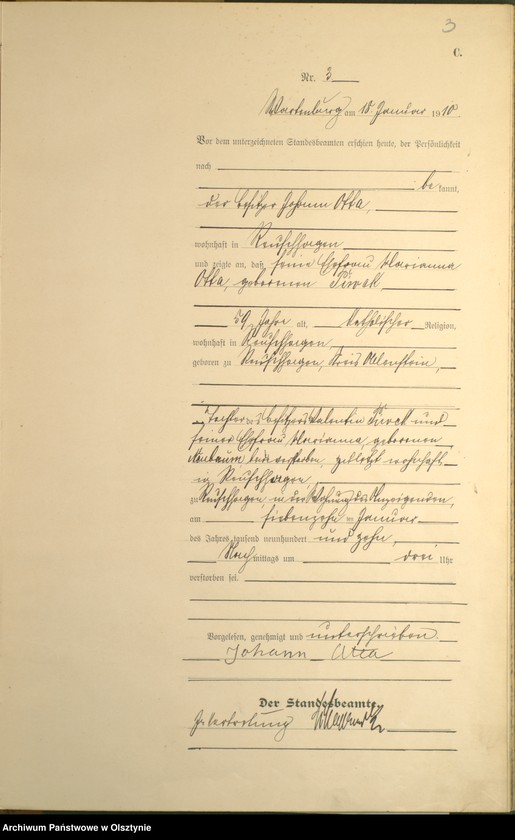 3
C.
Nr. 3
Wartenburg am 18. Januar 1910.
Vor dem unterzeichneten Standesbeamten erschien heute, der Persönlichkeit
nach
be kannt,
der Besitzer Johann Otta,
wohnhaft in Reuschhagen
und zeigte an, daß seine Ehefrau Marianna
Otta, geborenen
59 Jahre alt, katholischer Religion,
wohnhaft in Reuschhagen,
geboren zu Reuschhagen, Kreis Allenstein,
Tochter des Besitzers Valentin und
seiner Ehefrau Marianna, geborenen
beide verstorben, zuletzt wohnhaft
in Reuschhagen,
zu Reuschhagen, in der Wohnung des Anzeigenden,
am siebenzehn ten Januar
des Jahres tausend neunhundert und zehn,
Nach mittags um drei Uhr
verstorben sei.
Vorgelesen, genehmigt und unterschrieben.
Johann Otta
Der Standesbeamte,
In Vertretung
Archiwum Państwowe w Olsztynie